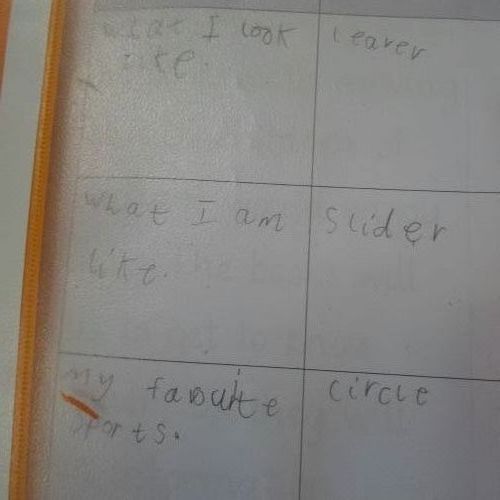 what I look
like.
learer
what I am
like.
Slider
my favourite
sports.
circle